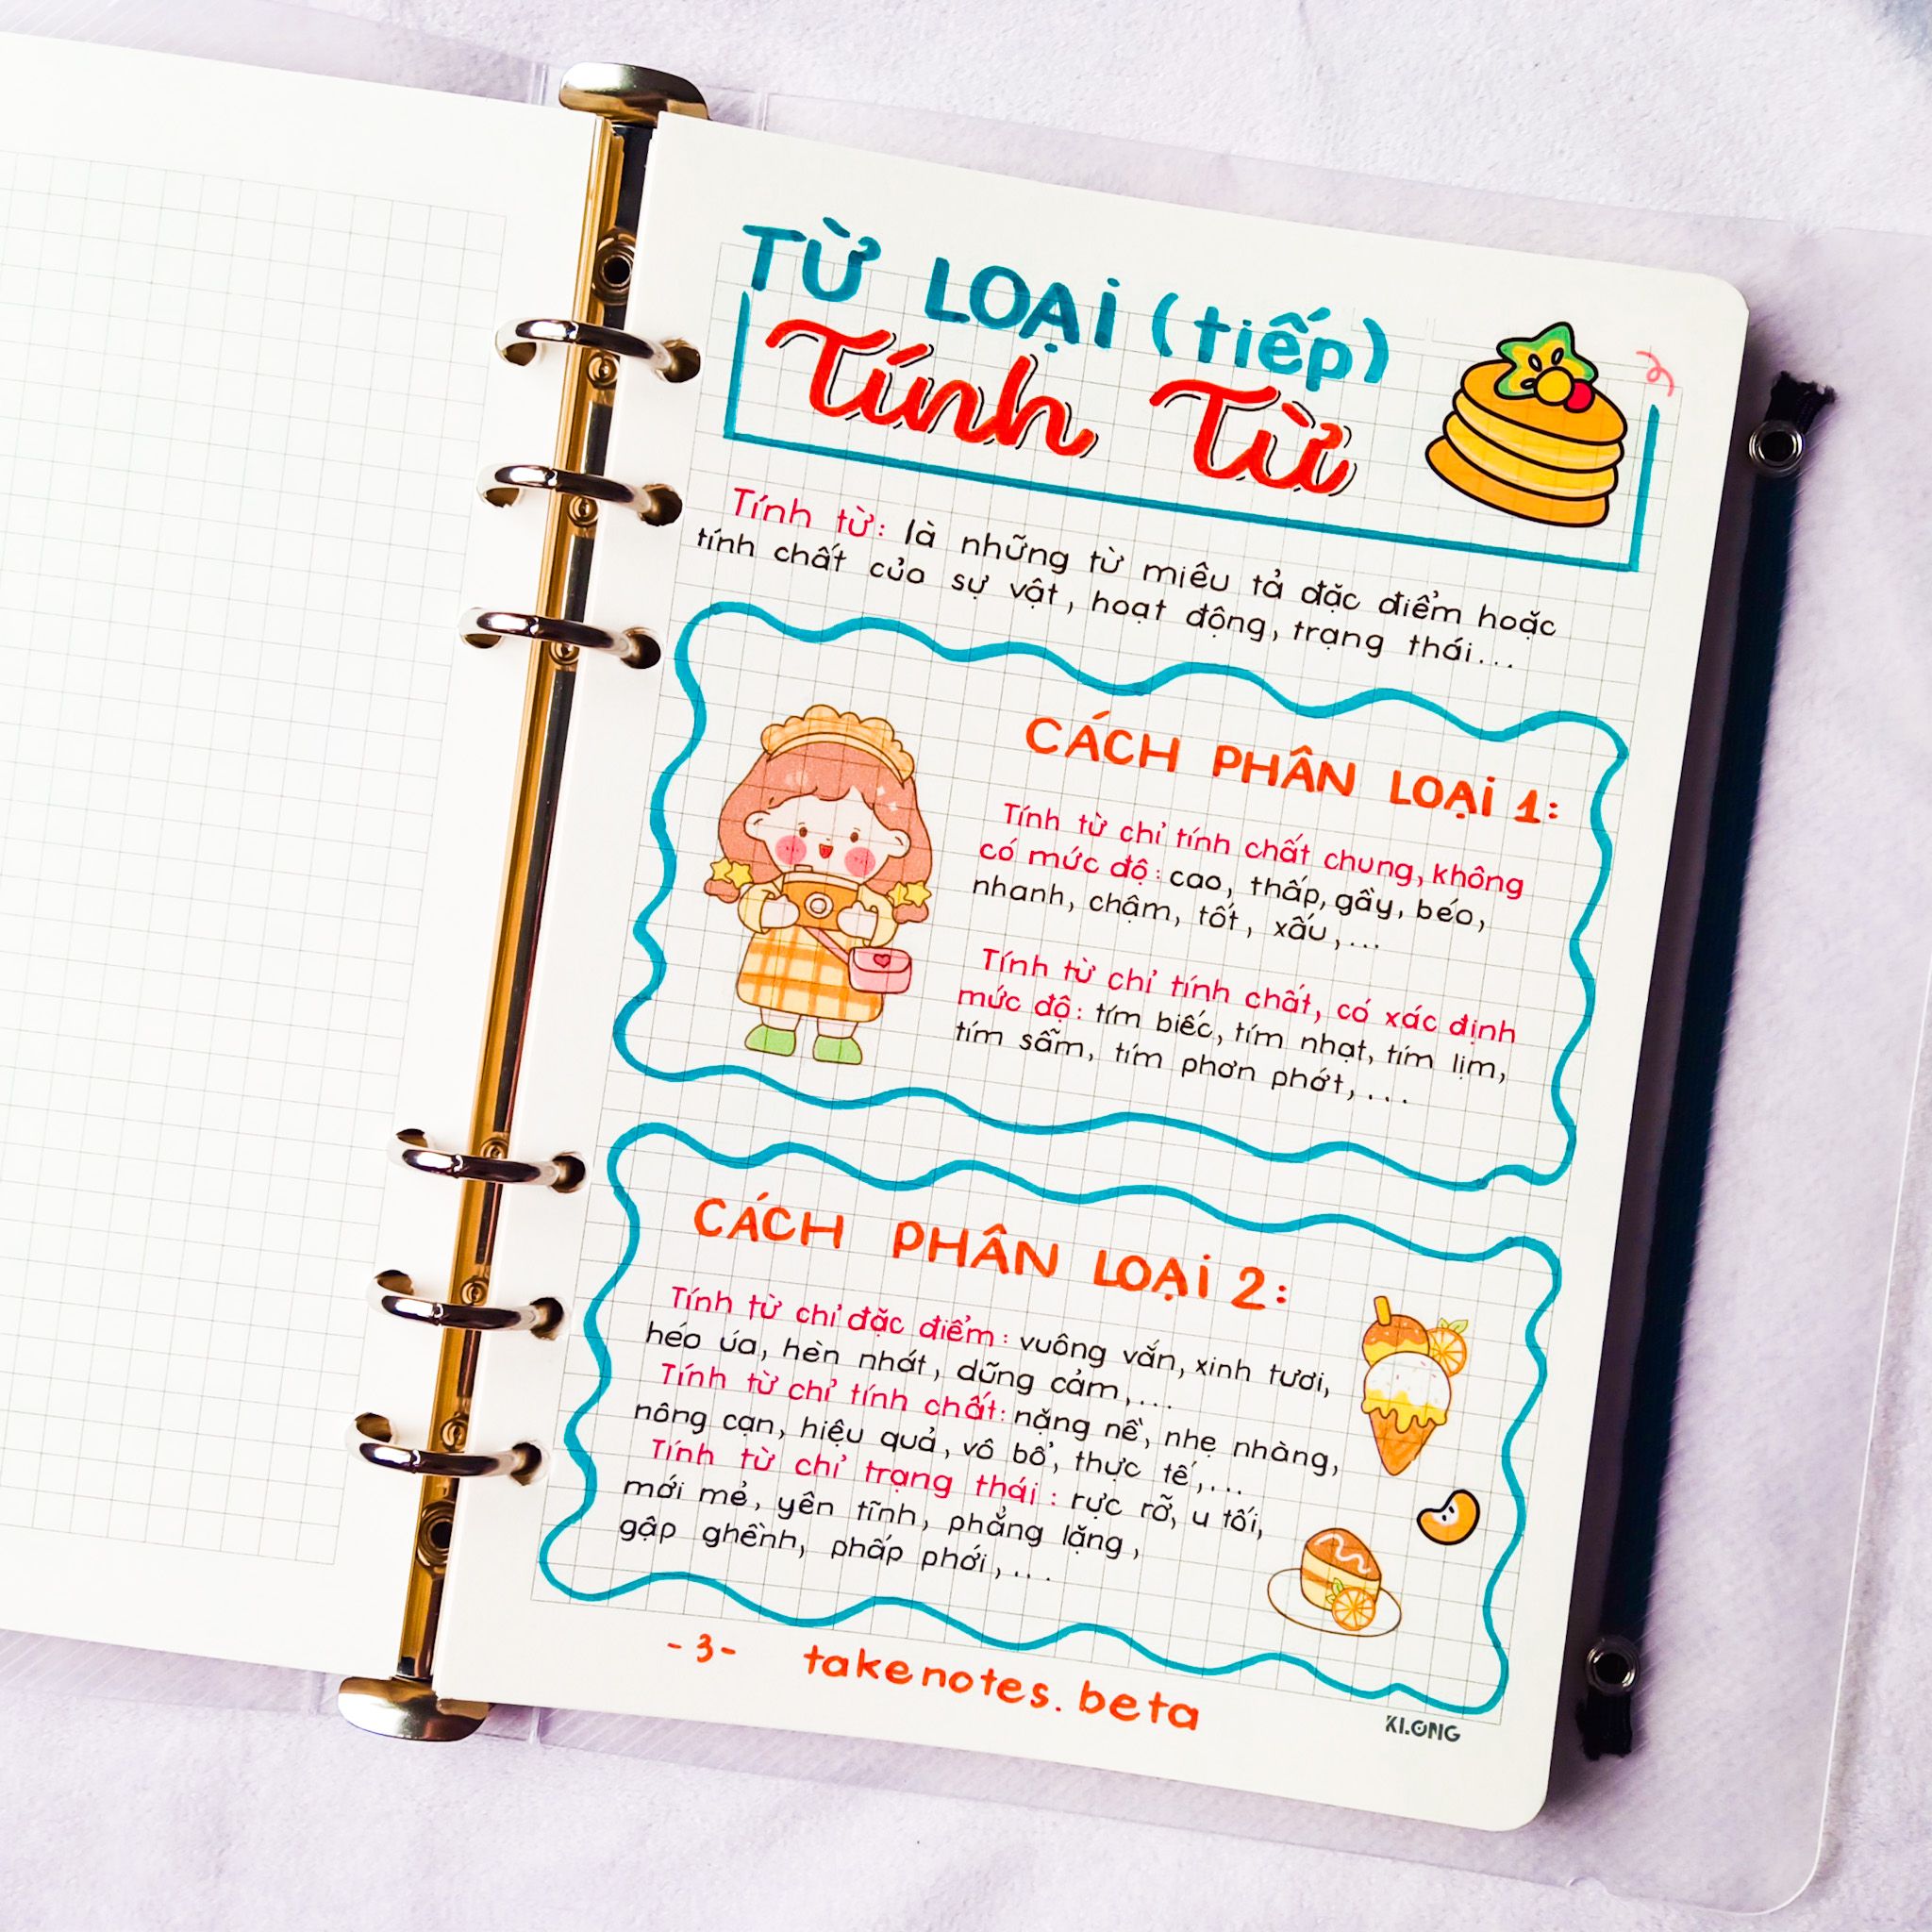 TỪ LOẠI (tiếp)
Tính Từ
Tính từ: là những từ miêu tả đặc điểm hoặc
tính chất của sự vật, hoạt động, trạng thái...
CÁCH PHÂN LOẠI 1:
Tính từ chỉ tính chất chung, không
có mức độ: cao, thấp, gầy, béo,
nhanh, chậm, tốt, xấu,...
Tính từ chỉ tính chất, có xác định
mức độ: tím biếc, tím nhạt, tím lịm,
tím sẫm, tím phơn phớt,...
CÁCH PHÂN LOẠI 2:
Tính từ chỉ đặc điểm: vuông vắn, xinh tươi,
héo úa, hèn nhát, dũng cảm,...
Tính từ chỉ tính chất: nặng nề, nhẹ nhàng,
nông cạn, hiệu quả, vô bổ, thực tế,...
Tính từ chỉ trạng thái: rực rỡ, u tối,
mới mẻ, yên tĩnh, phẳng lặng,
gập ghềnh, phấp phới,...
-3- takenotes.beta
KI.ONG